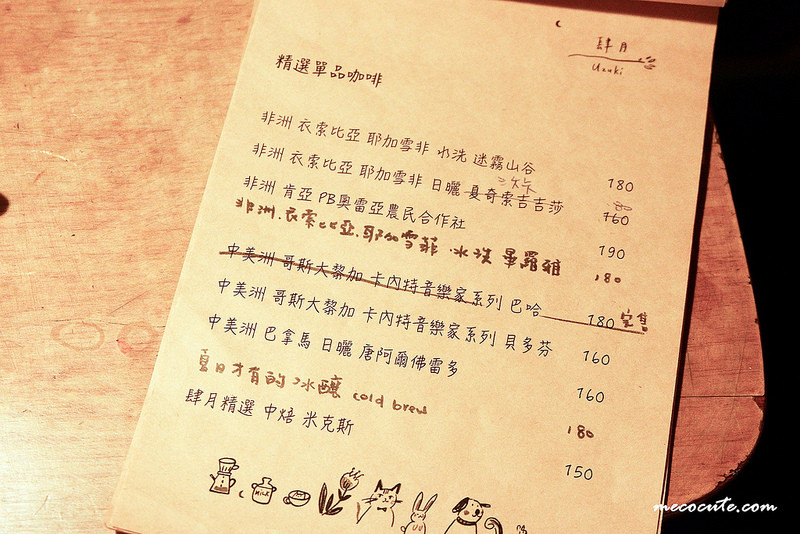 肆月
uzuki
精選單品咖啡
非洲 衣索比亞 耶加雪非 水洗 迷霧山谷 180
非洲 衣索比亞 耶加雪非 日曬 夏奇索吉吉莎 160
80
非洲 肯亞 PB奧雷亞農民合作社 190
非洲.衣索比亞.耶加雪菲.水洗 畢羅雅 180
中美洲 哥斯大黎加 卡內特音樂家系列 巴哈 180 完售
中美洲 哥斯大黎加 卡內特音樂家系列 貝多芬 160
中美洲 巴拿馬 日曬 唐阿爾佛雷多 160
夏日才有的冰釀 cold brew 180
肆月精選 中焙 米克斯 150
MILK
mecocute.com